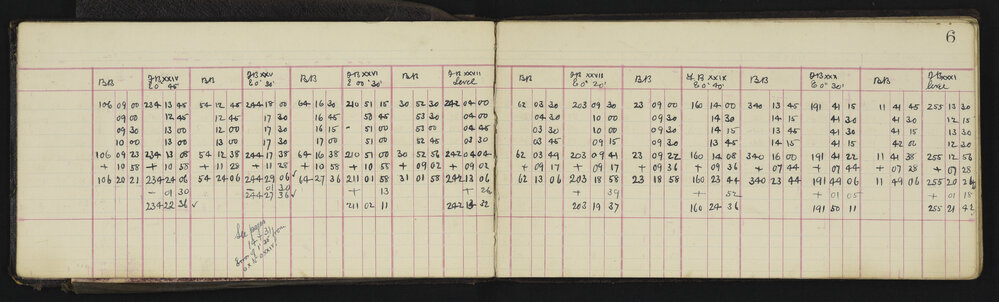 6
BB IB XXIV BB IB XXV BB IB XXVI BB IB XXVII BB BB IB XXIX BB IB XXX BB IB XXXI
E 0° 45' E 0° 30' E 00° 30' level E 0° 20' E 0° 40' E 0° 30' level
106 09 00 234 13 45 54 12 45 244 18 00 64 16 30 210 51 15 30 52 30 242 04 00 62 03 30 203 09 30 23 09 00 160 14 00 340 13 45 191 41 15 11 41 45 255 13 30
09 00 12 45 12 45 17 30 16 45 50 45 53 30 04 00 04 30 10 00 09 30 14 30 14 15 41 30 41 30 12 15
09 30 13 00 12 00 17 30 16 15 51 00 53 00 04 45 03 30 10 00 09 30 14 15 13 45 41 30 41 15 13 30
10 00 13 00 13 00 17 30 17 00 51 00 52 45 03 30 03 45 09 15 09 30 13 45 14 15 41 15 42 00 12 30
106 09 23 234 13 08 54 12 38 244 17 38 64 16 38 210 51 00 30 52 56 242 04 04 62 03 49 203 09 41 23 09 22 160 14 08 340 16 00 191 41 22 11 41 38 255 12 56
+ 10 58 + 10 58 + 11 28 + 11 28 + 10 58 + 10 58 + 09 02 + 09 02 + 09 17 + 09 17 + 09 36 + 09 36 + 07 44 + 07 44 + 07 28 + 07 28
106 20 21 234 24 06 54 24 06 244 29 06 ✓ 64 27 36 211 01 58 31 01 58 242 13 06 62 13 06 203 18 58 23 18 58 160 23 44 340 23 44 191 49 06 11 49 06 255 20 24
- 01 30 - 01 30 + 13 + 26 + 39 + 52 + 01 05 + 01 18
234 22 36 ✓ 244 27 36 ✓ 211 02 11 242 13 32 203 19 37 160 24 36 191 50 11 255 21 42
See pages